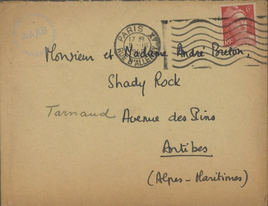 PARIS XVI
RUE D'ALLERAY
Monsieur et Madame André Breton,
Shady Rock
Tarnaud Avenue des Pins
Antibes
(Alpes-Maritimes)